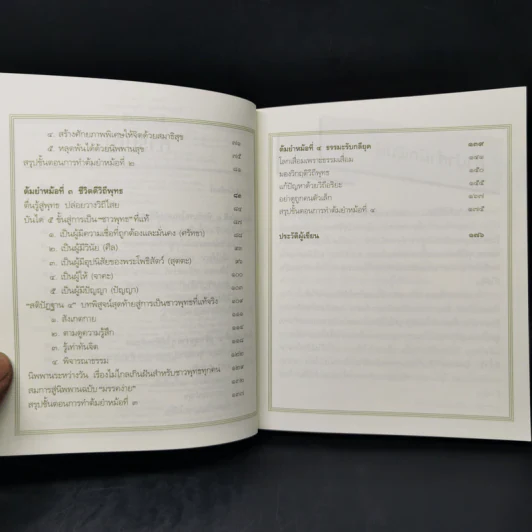 ๔. สร้างศักยภาพพิเศษให้จิตด้วยสมาธิสุข
๕. หลุดพ้นได้ด้วยนิพพานสุข ๗๕
สรุปขั้นตอนการทำต้มยำหม้อที่ ๒
ต้มยำหม้อที่ ๓ ชีวิตดีวิถีพุทธ
ตื่นรู้สู่พุทธะ ปล่อยวางวิถีไสย
บันได ๕ ขั้นสู่การเป็น "ชาวพุทธ" ที่แท้
๑. เป็นผู้มีความเชื่อที่ถูกต้องและมั่นคง (ศรัทธา)
๒. เป็นผู้มีวินัย (ศีล)
๓. เป็นผู้มีอุปนิสัยของพระโพธิสัตว์ (สุตตะ)
๔. เป็นผู้ให้ (จาคะ) ๑๐๐
๕. เป็นผู้มีปัญญา (ปัญญา)
"สติปัฏฐาน ๔" บทพิสูจน์สุดท้ายสู่การเป็นชาวพุทธที่แท้จริง
๑. สังเกตกาย
๒. ตามดูความรู้สึก
๓. รู้เท่าทันจิต
๔. พิจารณาธรรม
นิพพานระหว่างวัน เรื่องไม่ไกลเกินฝันสำหรับชาวพุทธทุกคน
สมการสู่นิพพานฉบับ "มรรคง่าย"
สรุปขั้นตอนการทำต้มยำหม้อที่ ๓
ต้มยำหม้อที่ ๔ ธรรมะรับกลียุค ๑๓๙
โลกเสื่อมเพราะธรรมเสื่อม
มองวิกฤติวิถีพุทธ
แก้ปัญหาด้วยวิถีอริยะ ๑๕๕
อย่าดูถูกคนตัวเล็ก
สรุปขั้นตอนการทำต้มยำหม้อที่ ๔ ๑๗๕
ประวัติผู้เขียน ๑๗๖